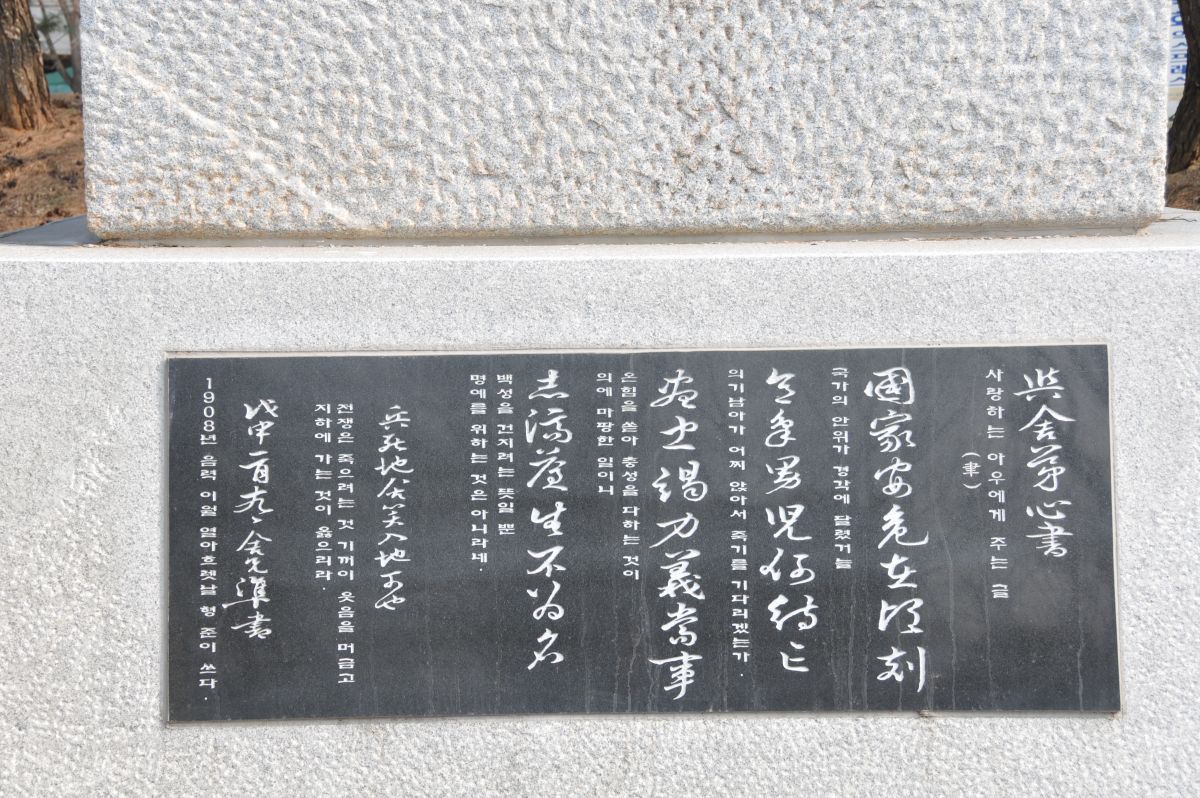 與舍弟心書
사랑하는 아우에게 주는 글
(聿)
國家安危在頃刻
국가의 안위가 경각에 달렸거늘
意氣男兒何待亡
의기남아가 어찌 앉아서 죽기를 기다리겠는가.
盡忠竭力義當事
온힘을 쏟아 충성을 다하는 것이
의에 마땅한 일이니
志濟蒼生不為名
백성을 건지려는 뜻일 뿐
명예를 위하는 것은 아니라네.
兵死地也含笑入地可也
전쟁은 죽으려는 것 기꺼이 웃음을 머금고
지하에 가는 것이 옳으리라.
戊申二月十九日舍兄準書
1908년 음력 이월 열아흐렛날 형 준이 쓰다.